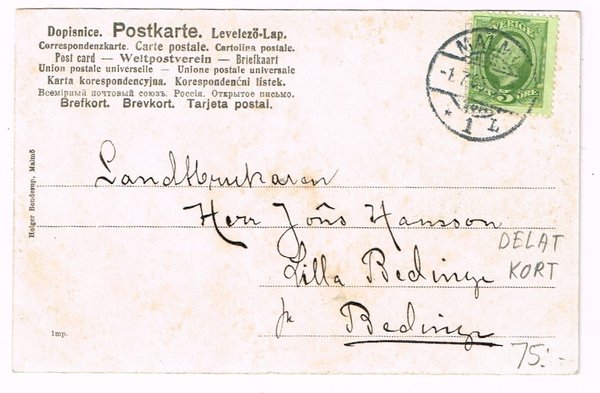 Dopisnice. Postkarte. Levelező-Lap.
Correspondenzkarte. Carte postale. Cartolina postale.
Post card — Weltpostverein — Briefkaart
Union postale universelle — Unione postale universale
Karta korespondencyjna. Korespondenčni listek.
Всемірный почтовый союзъ. Россія. Открытое письмо.
Brefkort. Brevkort. Tarjeta postal.
SVERIGE
5 ÖRE
MALM
-1.7
* 1 L
Landtbrukaren
Herr Jöns Hansson
Lilla Bedinge
pr Bedinge
DELAT
KORT
75:-
Holger Bonderup, Malmö
Imp.